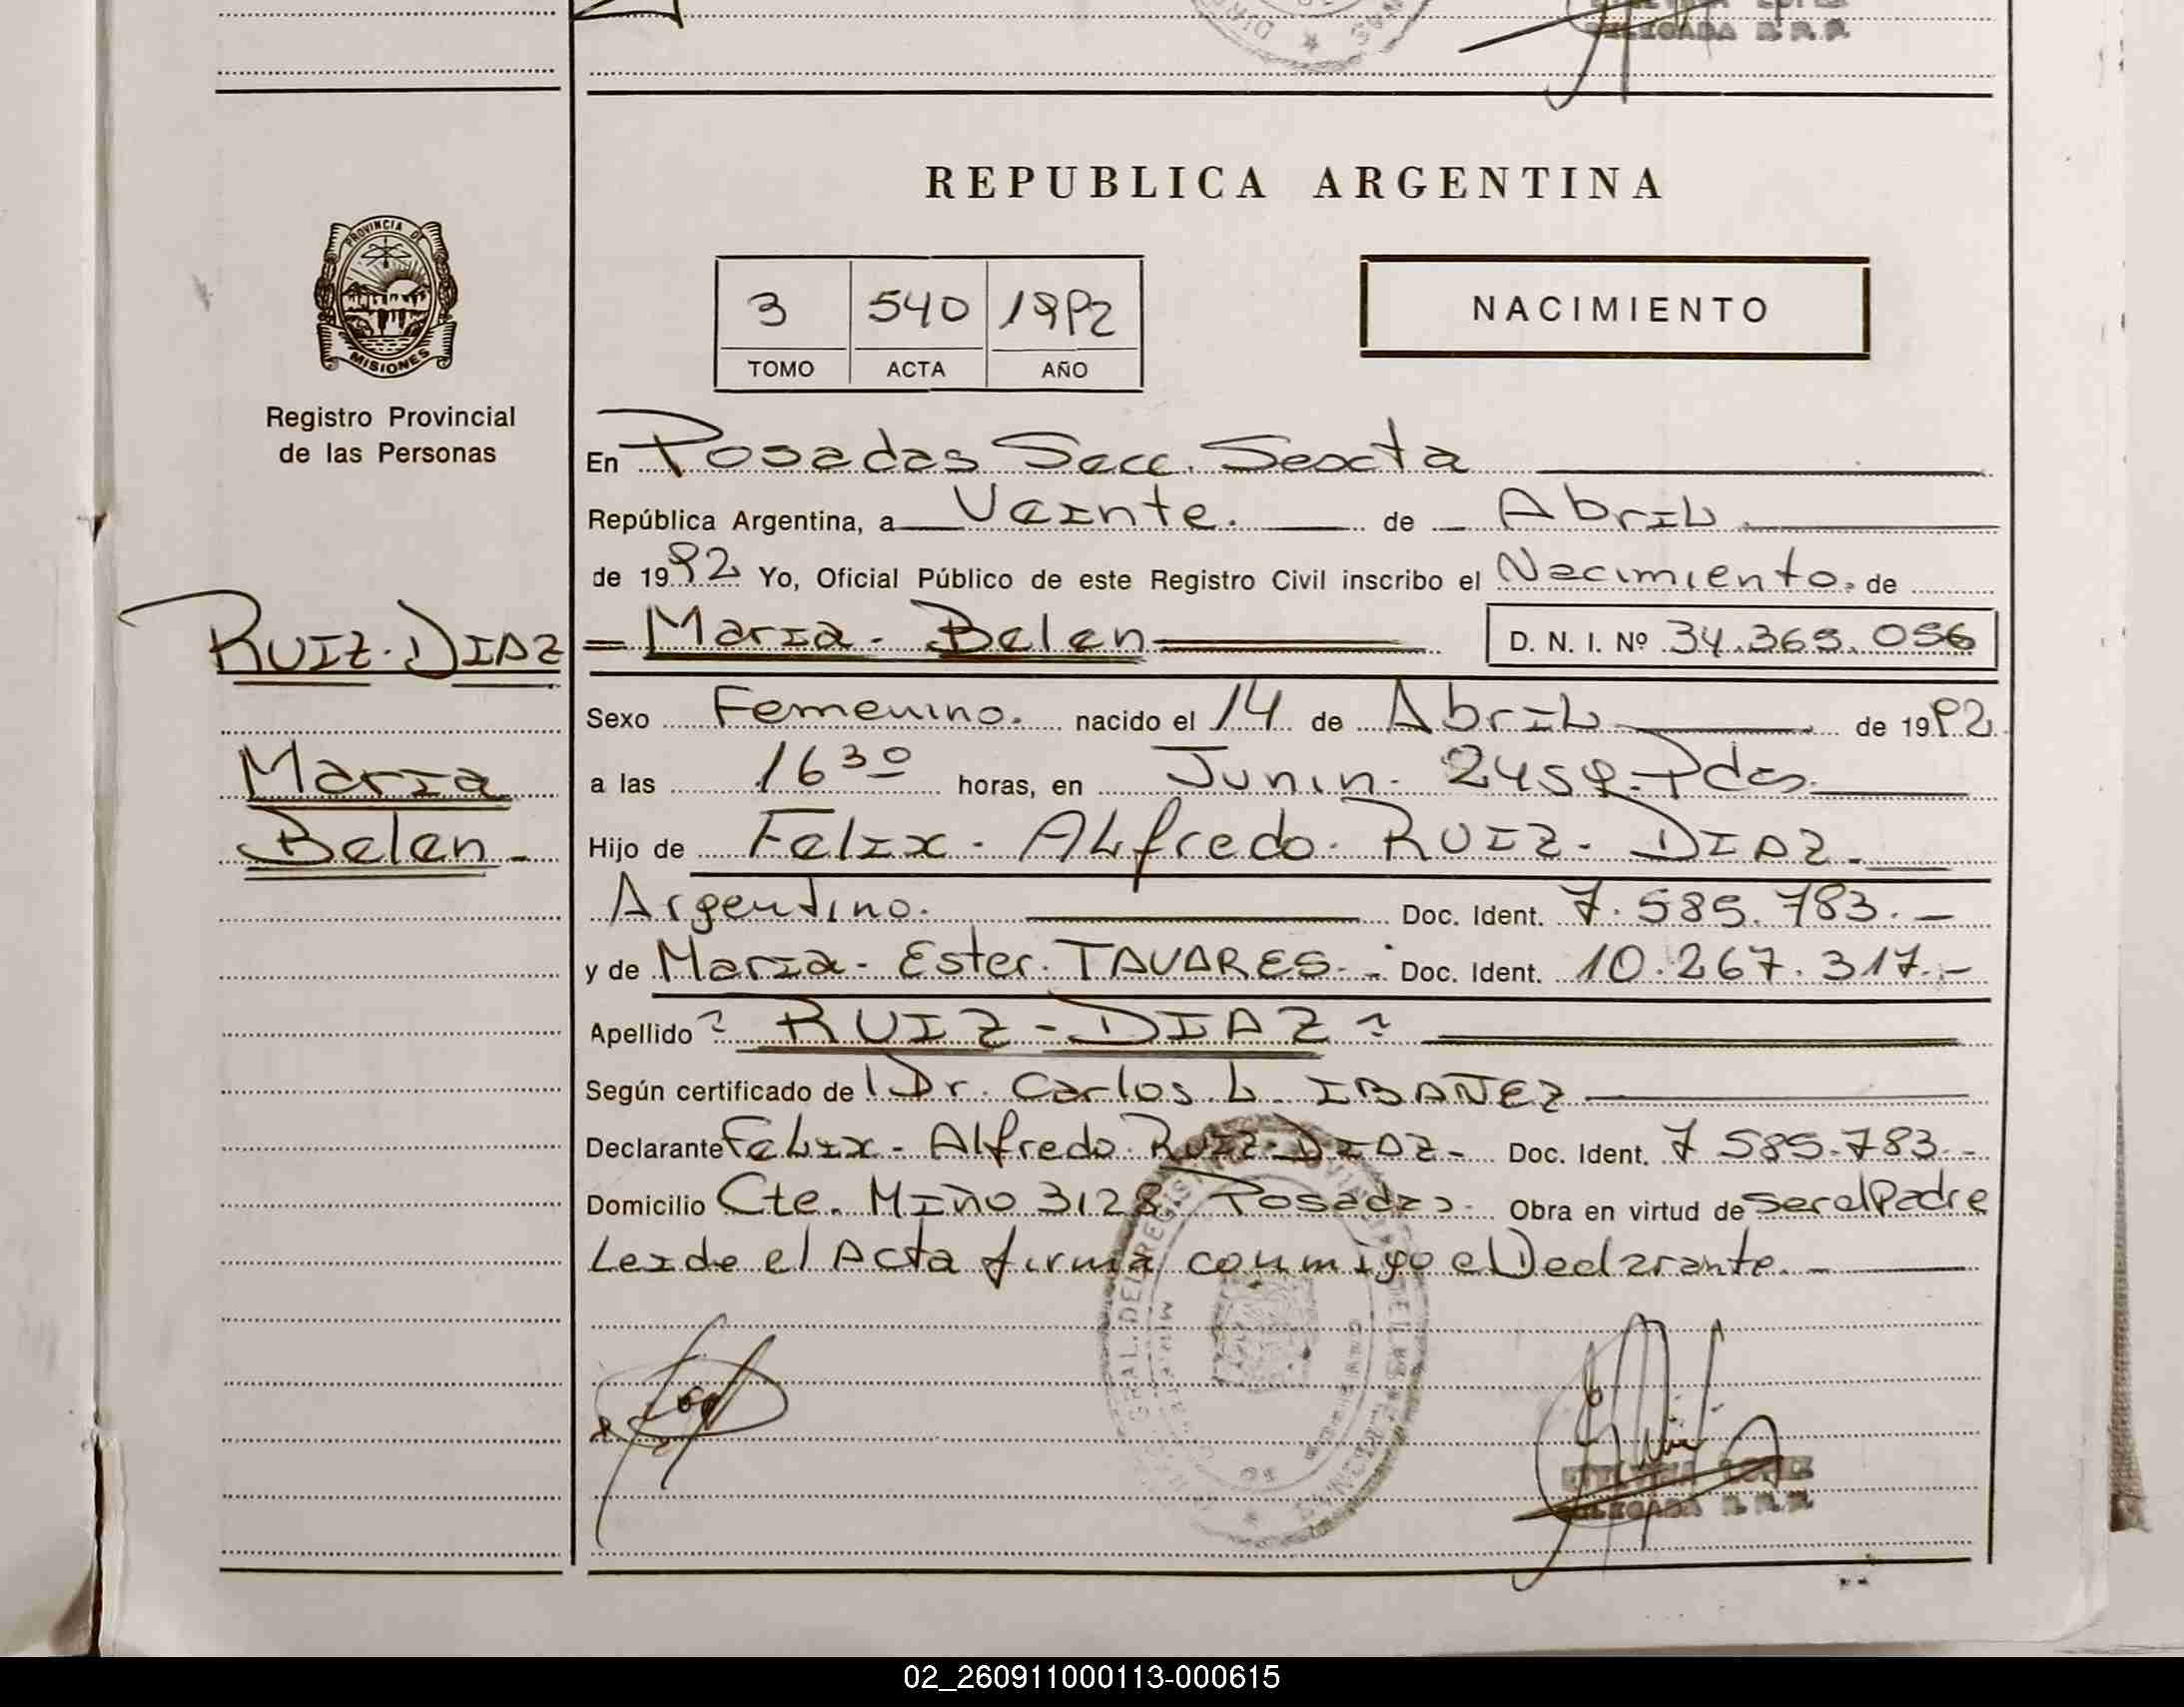 DELEGADA R.P.P.
REPUBLICA ARGENTINA
PROVINCIA DE
MISIONES
3 540 1992
TOMO ACTA AÑO
NACIMIENTO
Registro Provincial
de las Personas
En Posadas Secc. Sexta
República Argentina, a Veinte. de Abril
de 1992 Yo, Oficial Público de este Registro Civil inscribo el Nacimiento. de
RUIZ-DIAZ
Maria
Belen-
Maria - Belen D. N. I. Nº 34.365.056
Sexo Femenino. nacido el 14 de Abril de 1992
a las 16 30 horas, en Junin - 2459-Pdas.
Hijo de Felix - Alfredo - RUIZ - DIAZ -
Argentino. Doc. Ident. 7.585.783.-
y de Maria - Ester - TAVARES - Doc. Ident. 10.267.317.-
Apellido RUIZ - DIAZ
Según certificado de Dr. Carlos L. IBAÑEZ
Declarante Felix - Alfredo - RUIZ-DIAZ - Doc. Ident. 7.585.783.-
Domicilio Cte. Miño 3128 Posadas. Obra en virtud de ser el Padre
Leide el Acta firma conmigo el Declarante.-
LOPEZ
DELEGADA R.P.P.
02_260911000113-000615